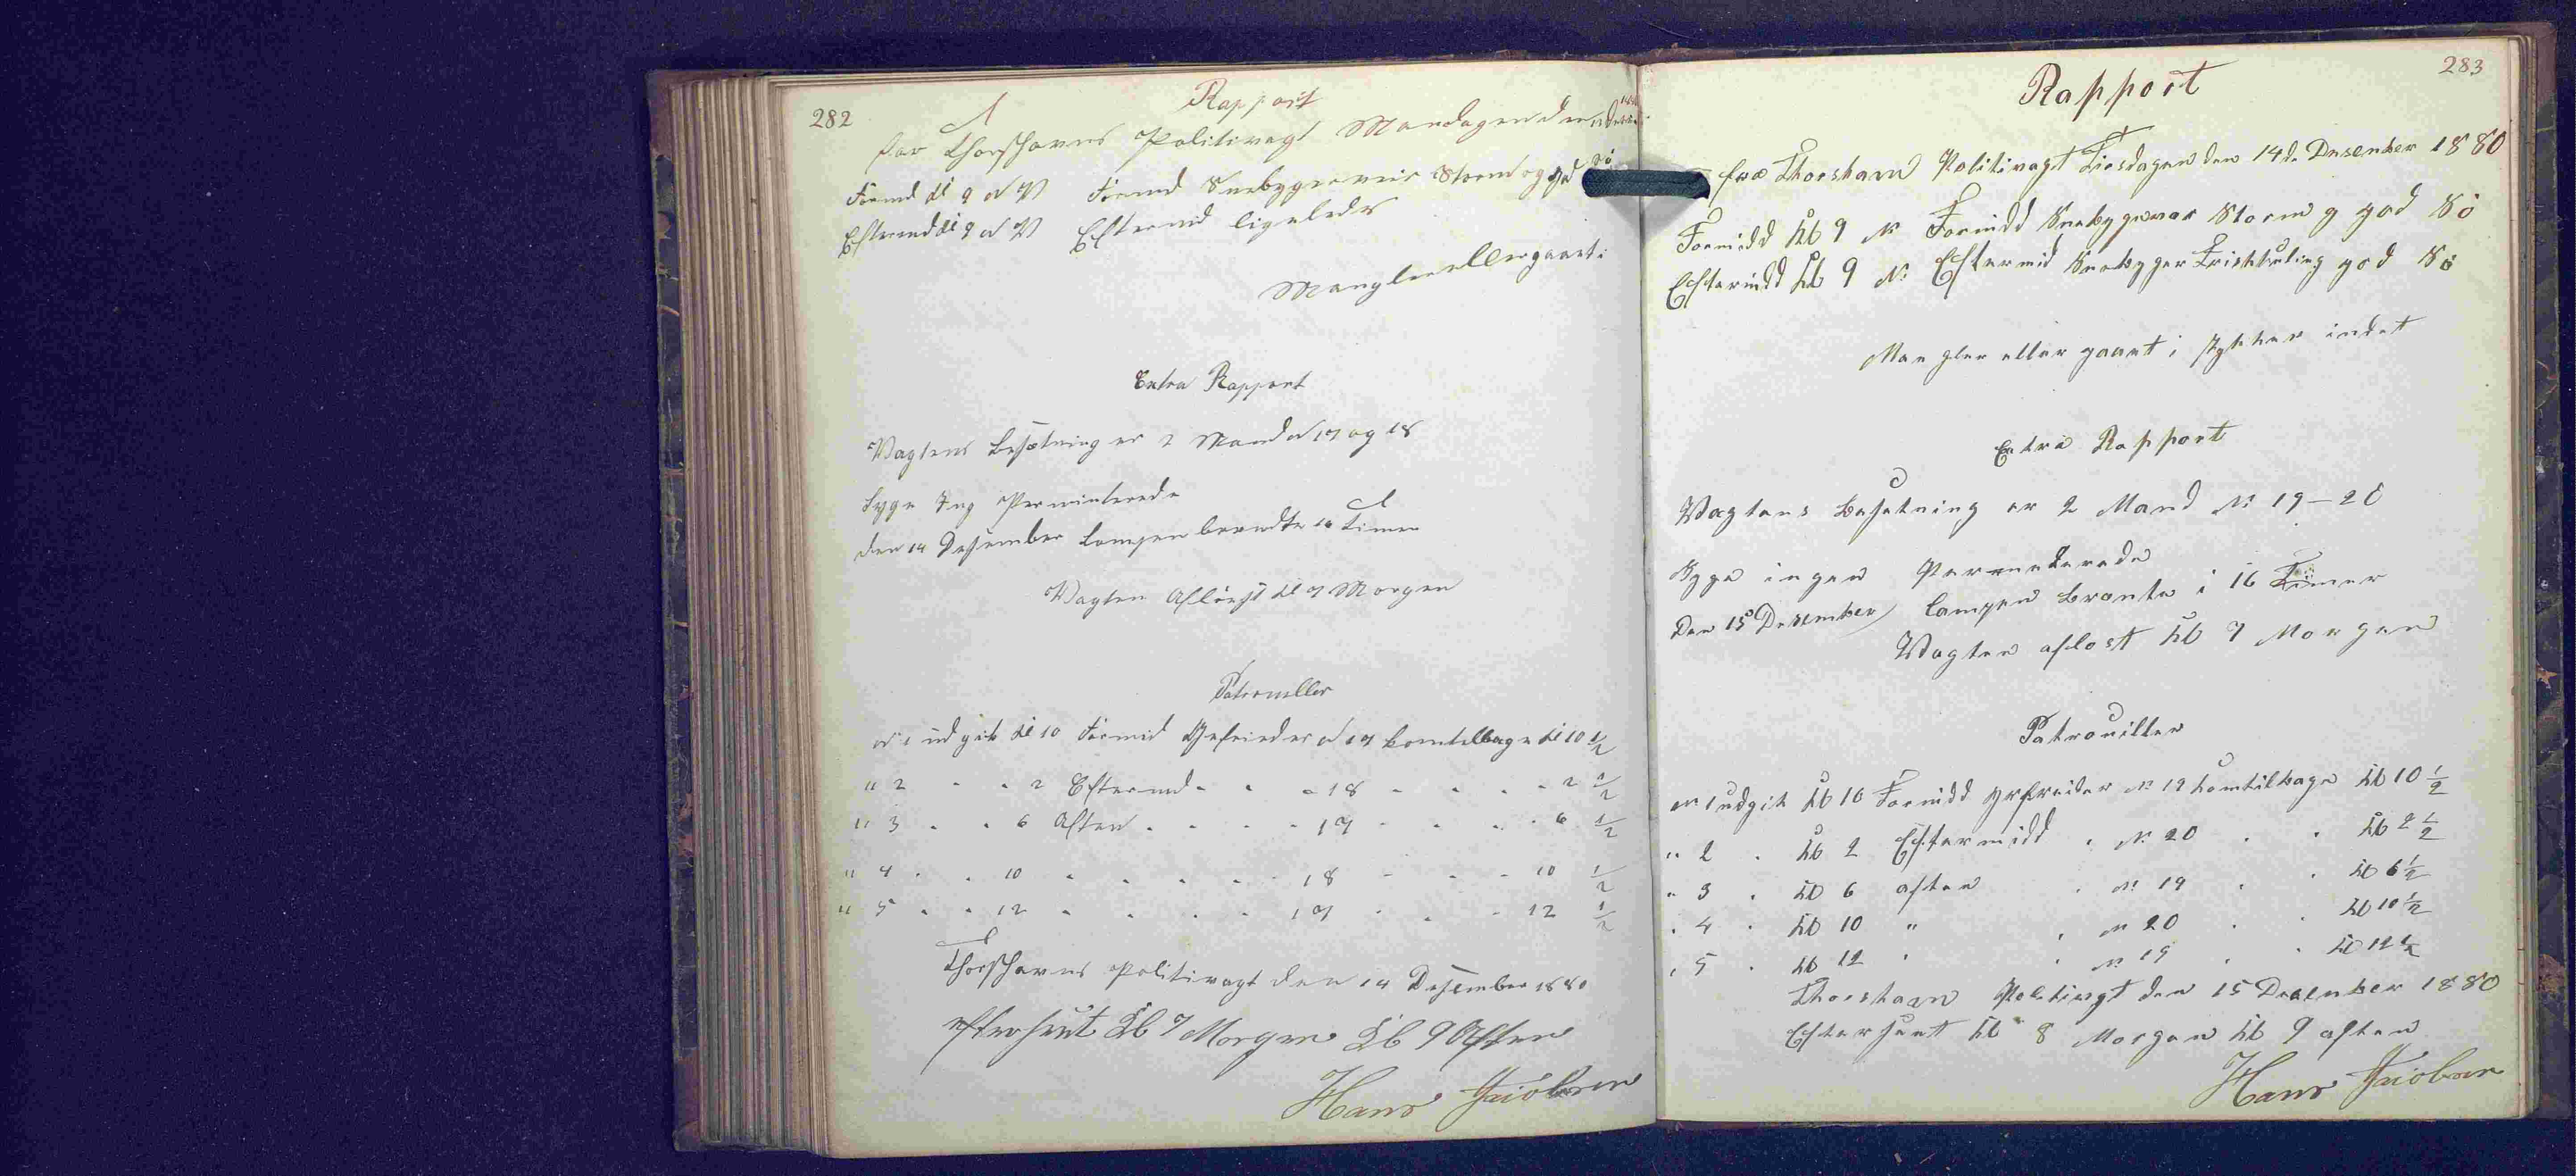 282
Rapport
for Thorshavns Politivagt Mandagen den
Formd Kl 9 N V Formd Snebygerveir Storm og god Sö
Eftermd Kl 9 N V Eftermd ligeledes
Mangler eller gaaet i
Extra Rapport
Vagtens Besætning er 2 Mand N 17 og 18
Syge Ing Perminterede
den 14 Desember Lampen brendte 16 Timer
Vagten Aflöst Kl 7 Morgen
Patrouiller
N 1 udgik Kl 10 Formid Gefreider N 17 kom tilbage Kl 10 1/2
" 2 - - 2 Eftermd - - - 18 - - - - 2 1/2
" 3 - - 6 Aften - - - - 17 - - - - 6 1/2
" 4 - - 10 - - - - - 18 - - - 10 1/2
" 5 - - 12 - - - - 17 - - - 12 1/2
Thorshavns Politivagt den 14 Desember 1880
efterseet Kl 7 Morgen Kl 9 Aften
Hans Jacobsen
283
Rapport
fra Thorshavn Politivagt Tirsdagen den 14de Desember 1880
Formidd Kl 9 N Formidd Snebygevær Storm g god Sö
Eftermidd Kl 9 N: Eftermid Snebyger Friskkuling god Sö
Mangler eller gaaet i stykker indet
Extra Rapport
Vagtens Besetning er 2 Mand N: 19 - 20
Syge ingen Permeterede
Den 15 Desember Lampen brente i 16 Timer
Vagten aflost Kl 7 Morgen
Patrouiller
N 1 udgik Kl 10 Formidd gefreider N 19 komtilbage Kl 10 1/2
" 2 . Kl 2 Eftermidd . N: 20 . . Kl 2 1/2
" 3 . Kl 6 aften . N: 19 . . Kl 6 1/2
. 4 . Kl 10 " . N 20 . . Kl 10 1/2
. 5 . Kl 12 . . N: 19 . . Kl 12 1/2
Thorshavn Politivagt den 15 Desember 1880
Efterseet Kl 8 Morgen Kl 9 aften
Hans Jacobsen